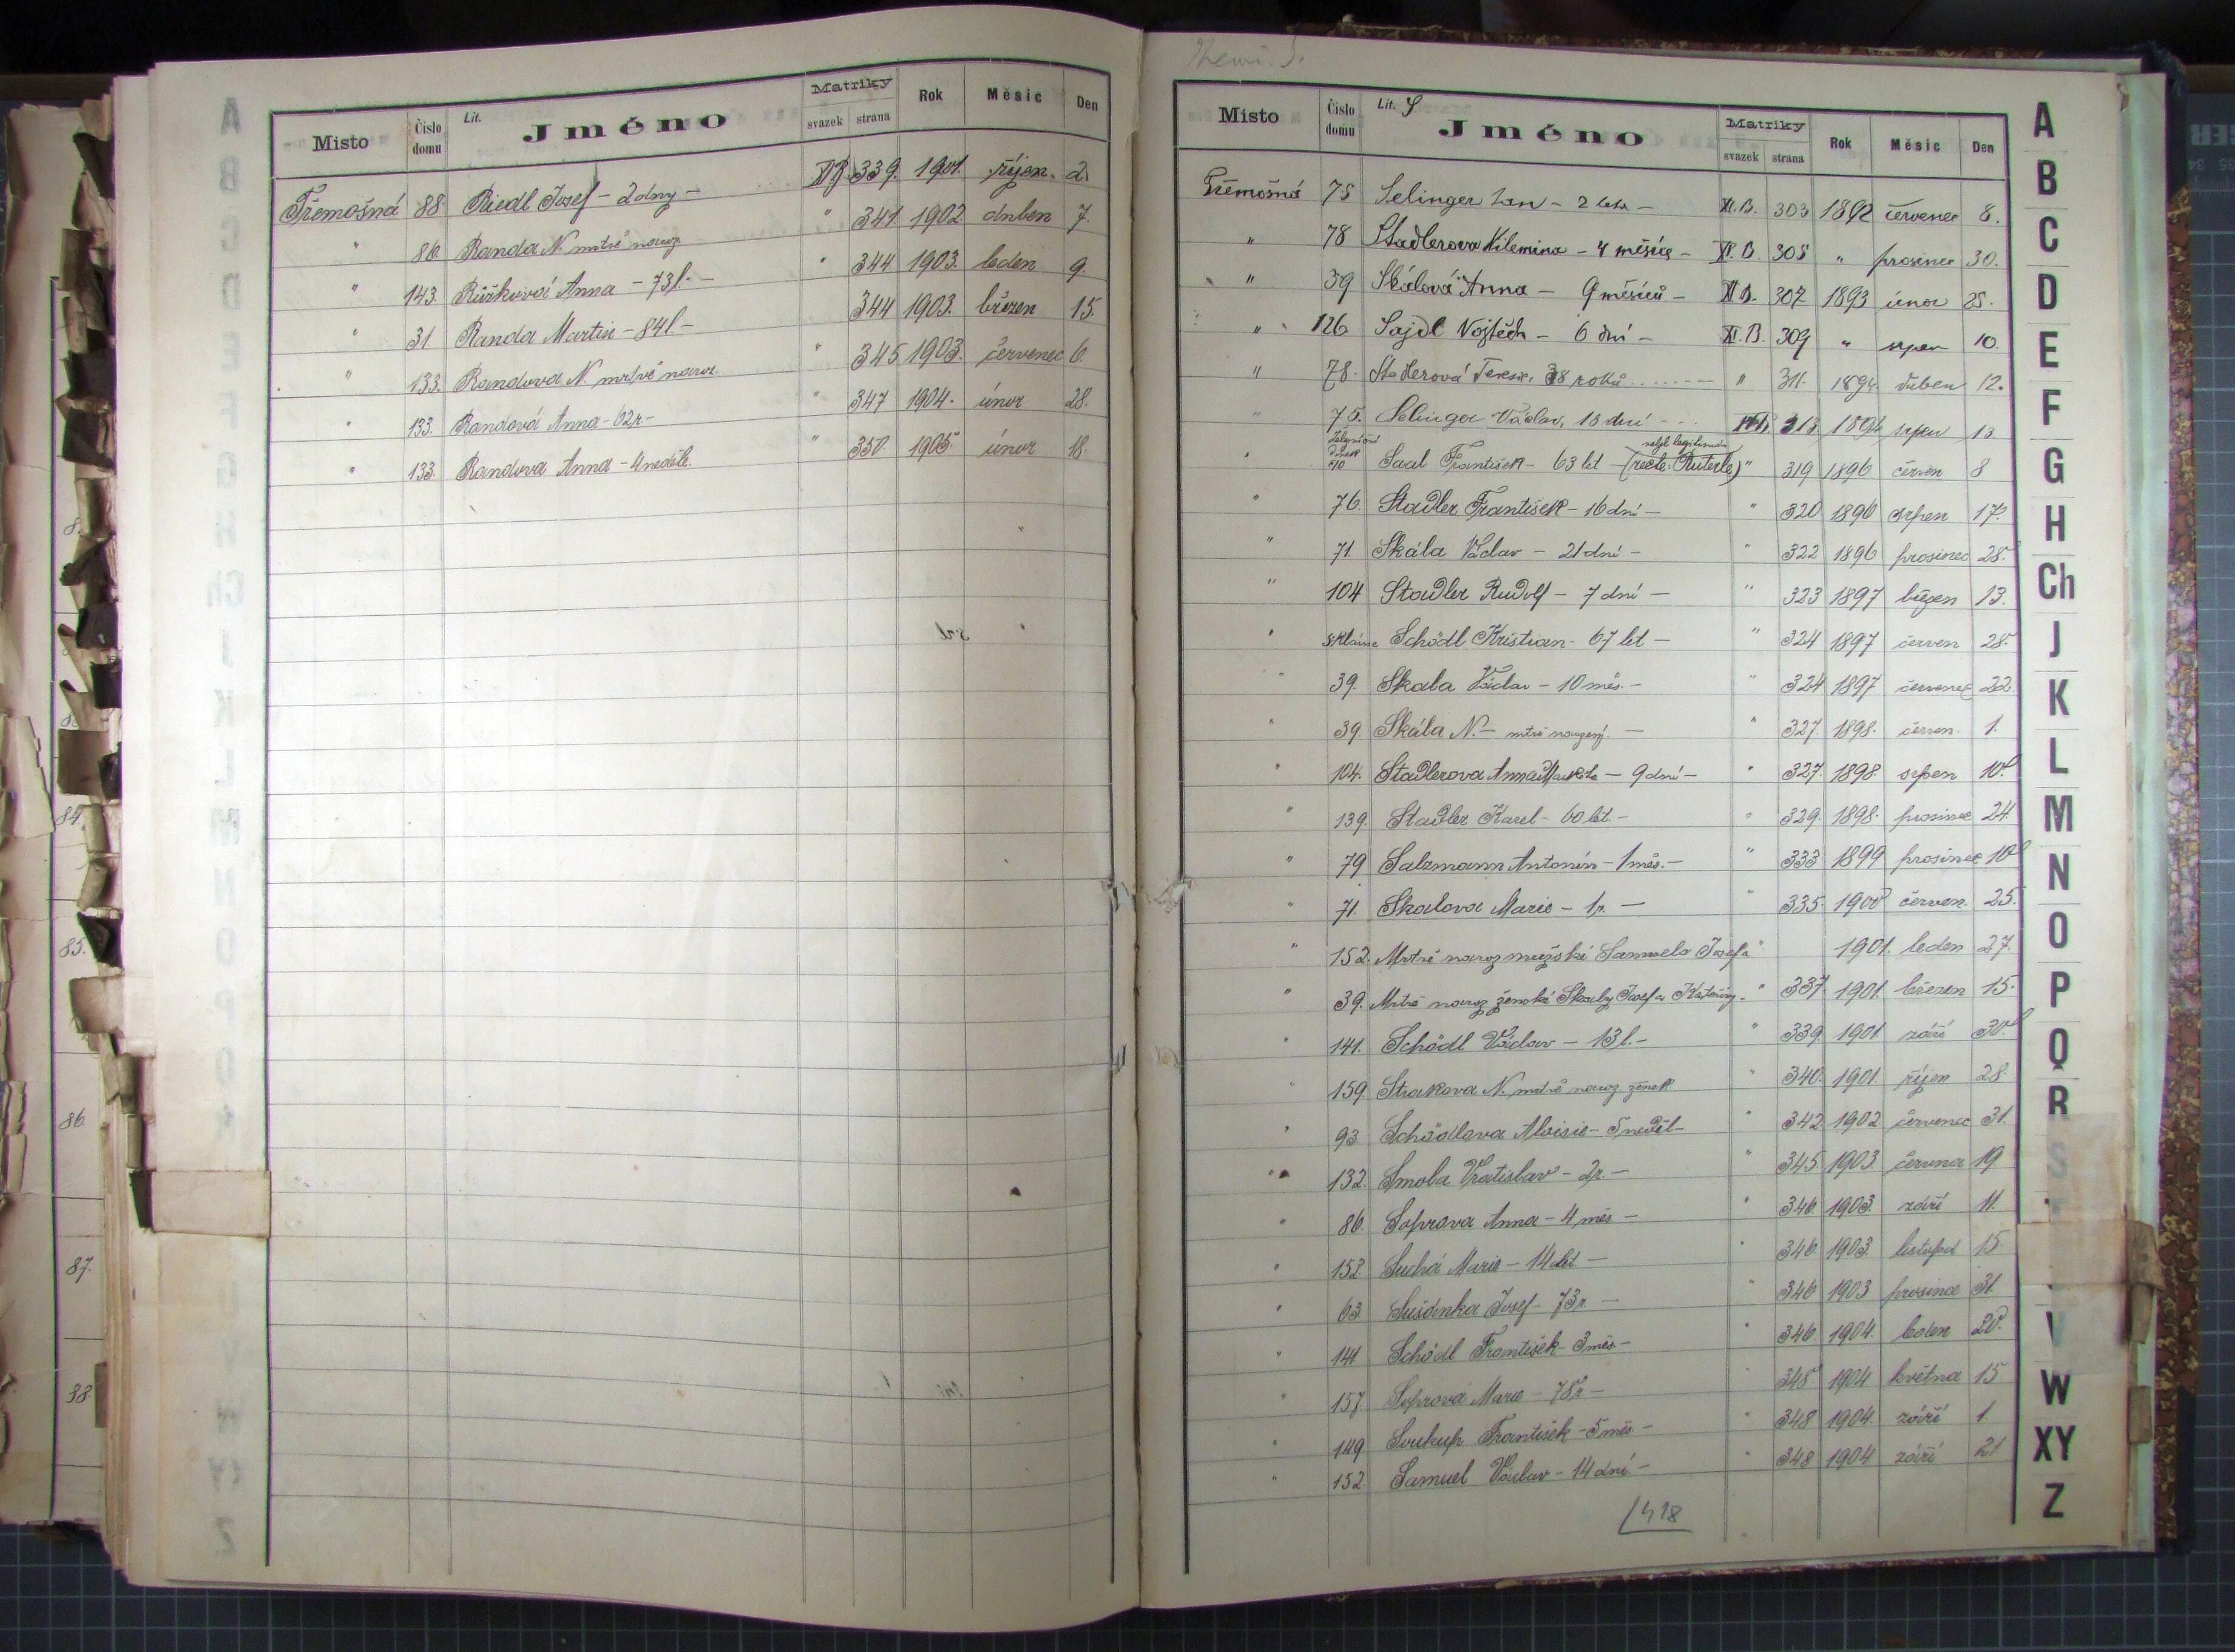 Místo Číslo domu Lit. Jméno Matriky svazek strana Rok Měsíc Den
Třemošná 88 Riedl Josef - 2 dny - XI B. 339. 1901. říjen. 2.
" 86. Randa N. mrtvě naroz " 341 1902 duben 7.
" 143. Růžková Anna - 73 l. - " 344 1903. leden 9.
" 31 Randa Martin - 84 l. - 344 1903. březen 15.
" 133. Randova N. mrtvě naroz. " 345 1903. červenec 6.
" 133. Randová Anna - 62 r. - " 347 1904. únor 28.
" 133. Randova Anna - 4 neděle. " 350 1905. únor 18.
Místo Číslo domu Lit. S Jméno Matriky svazek strana Rok Měsíc Den
Třemošná 75 Selinger Jan - 2 leta - XI. B. 303 1892 červenec 8.
" 78 Stadlerova Vilemina - 4 měsíce - XI. B. 305 " prosinec 30.
" 39 Skálová Anna - 9 měsíců - XI B. 307 1893 únor 25.
" 126 Sajdl Vojtěch - 6 dní - XI. B. 309 " srpen 10.
" 78. Stadlerová Teresie, 38 roků " 311. 1894 duben 12.
" 75. Selinger Václav, 13 dní 313. 1894 srpen 13
" 70 Saal František - 63 let - (recte: Ruterle) " 319 1896 červen 8
" 76. Stadler František - 16 dní - " 320 1896 srpen 17.
" 71 Skála Václav - 21 dní - " 322 1896 prosinec 28.
" 104 Stadler Rudolf - 7 dní - " 323 1897 březen 13.
" sklárna Schödl Kristian - 67 let - " 324 1897 červen 28.
" 39. Skala Václav - 10 měs. - " 324 1897 červenec 22.
" 39. Skála N. - mrtvě narozený. - " 327. 1898. červen. 1.
" 104. Stadlerova Anna Markéta - 9 dní - " 327. 1898. srpen 10.
" 139. Stadler Karel - 60 let - " 329. 1898. prosinec 24
" 79 Salzmann Antonín - 1 měs. - " 333 1899 prosinec 10
" 71. Skalova Marie - 1 r. - " 335. 1900 červen. 25.
" 152. Mrtvě naroz mužské Samuela Josefa " 1901. leden 27.
" 39. Mrtvě naroz ženské Skály Josefa Kateřiny. " 337 1901. březen 15.
" 141. Schödl Václav - 13 l. - " 339. 1901. září 30.
" 159 Strakova N. mrtvě naroz žensk. " 340. 1901. říjen 28.
" 93 Schödlova Aloisie - 5 neděl - " 342 1902 červenec 31.
" 132. Smola Vratislav - 2 r. - " 345. 1903 června 19
" 86. Soprova Anna - 4 měs - " 346 1903. září 11.
" 153. Suchá Marie - 14 let - " 346. 1903. listopad 15
" 63 Sušánka Josef - 73 r. - " 346 1903 prosince 31
" 141 Schödl František - 3 měs. - " 346. 1904. leden 20.
" 157 Soprová Marie - 78 r. - " 348 1904 května 15
" 149 Soukup František - 5 měs. - " 348 1904. září 1.
" 152. Samuel Václav - 14 dní. - " 348 1904 září 21
418
A
B
C
D
E
F
G
H
Ch
J
K
L
M
N
O
P
Q
R
S
V
W
XY
Z
84.
85.
86.
87.
88.